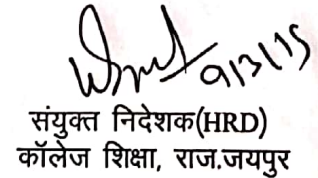 9/3/15
संयुक्त निदेशक(HRD)
कॉलेज शिक्षा, राज.जयपुर